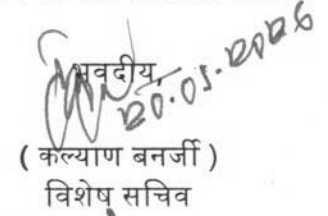 भवदीय,
20.01.2026
( कल्याण बनर्जी )
विशेष सचिव